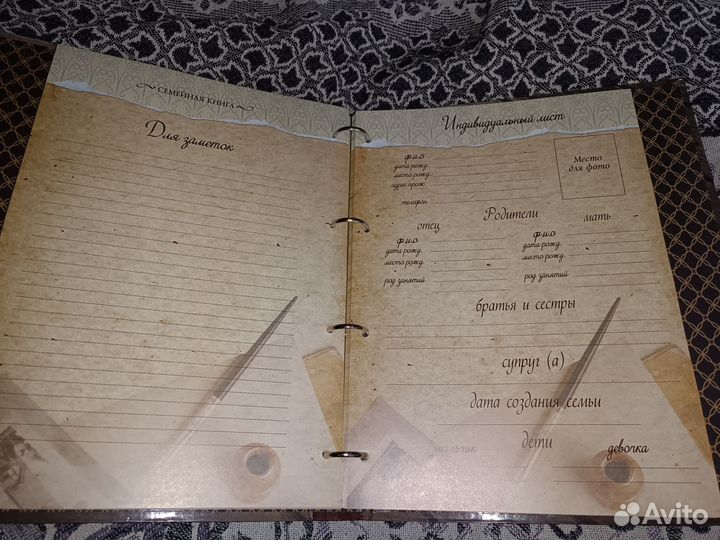 СЕМЕЙНАЯ КНИГА
Для заметок
Индивидуальный лист
ф.и.о
дата рожд.
место рожд.
адрес прож.
телефон
Место
для фото
Родители
отец
мать
ф.и.о
дата рожд.
место рожд.
род занятий
ф.и.о
дата рожд.
место рожд.
род занятий
братья и сестры
супруг (а)
дата создания семьи
дети
мальчик
девочка
Avito